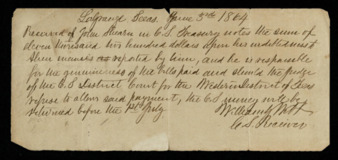 LaGrange Texas June 3rd 1864
Received of John Hearn in C.S. Treasury notes the sum of
eleven thousand six hundred dollars upon his indebtedness to
alien enemies as reported by him, and he is responsible
for the genuineness of the bills paid and should the judge
of the C.S. District Court for the Western District of Texas
refuse to allow said payment, the C.S. money only to be
returned before the 1st July.
C.S. Receiver